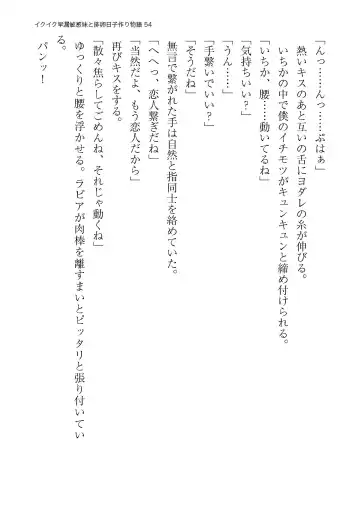 イクイク早漏敏感妹と排卵日子作り物語 54
「んっ……んっ……ぷはぁ」
熱いキスのあと互いの舌にヨダレの糸が伸びる。
いちかの中で僕のイチモツがキュンキュンと締め付けられる。
「いちか、腰……動いてるね」
「気持ちいい？」
「うん……」
「手繋いでいい？」
「そうだね」
無言で繋がれた手は自然と指同士を絡めていた。
「へへっ、恋人繋ぎだね」
「当然だよ、もう恋人だから」
再びキスをする。
「散々焦らしてごめんね、それじゃ動くね」
ゆっくりと腰を浮かせる。ラビアが肉棒を離すまいとピッタリと張り付いてい
る。
パンッ！